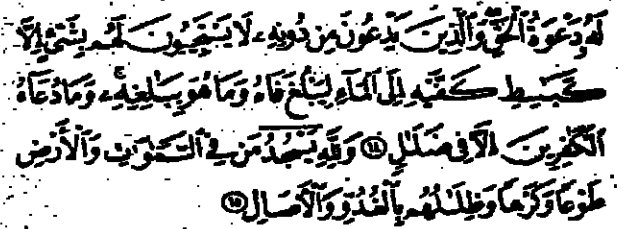 لَهُۥ دَعْوَةُ ٱلْحَقِّ وَٱلَّذِينَ يَدْعُونَ مِن دُونِهِۦ لَا يَسْتَجِيبُونَ لَهُم بِشَىْءٍ إِلَّا
كَبَـٰسِطِ كَفَّيْهِ إِلَى ٱلْمَآءِ لِيَبْلُغَ فَاهُ وَمَا هُوَ بِبَـٰلِغِهِۦ ۚ وَمَا دُعَآءُ
ٱلْكَـٰفِرِينَ إِلَّا فِى ضَلَـٰلٍ ١٤ وَلِلَّهِ يَسْجُدُ مَن فِى ٱلسَّمَـٰوَٰتِ وَٱلْأَرْضِ
طَوْعًا وَكَرْهًا وَظِلَـٰلُهُم بِٱلْغُدُوِّ وَٱلْـَٔاصَالِ ١٥